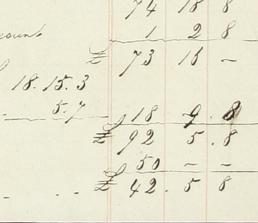 74 18 8
count 1 2 8
£ 73 16 -
18.15.3
5.7 18 9.8
£ 92 5.8
50 - -
£ 42.5 8